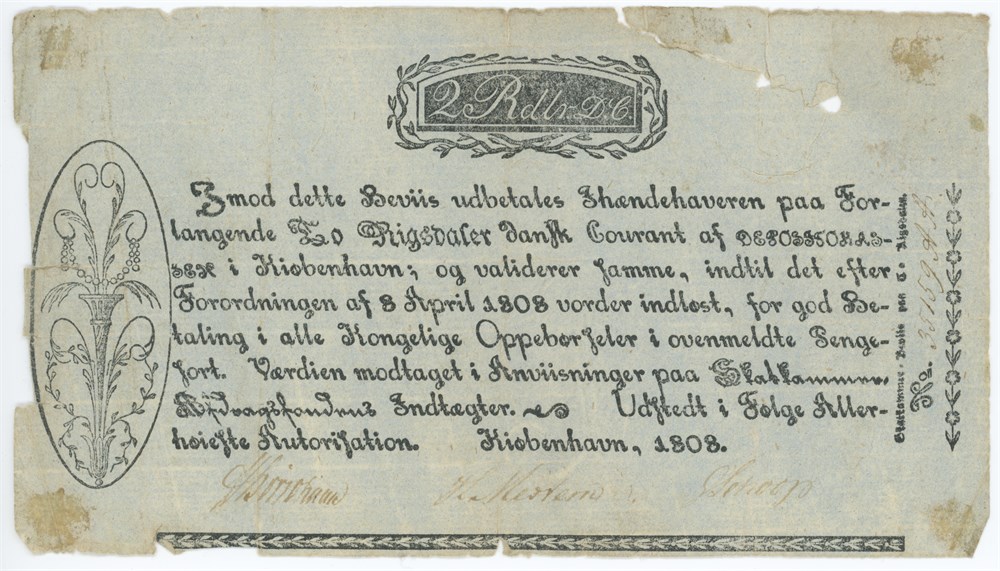 2 Rdlr. D. C.
Imod dette Beviis udbetales Ihændehaveren paa For-
langende To Rigsdaler dansk Courant af DEPOSITOKAS-
SEN i Kiøbenhavn; og validerer samme, indtil det efter
Forordningen af 8 April 1808 vorder indløst, for god Be-
taling i alle Kongelige Oppebørseler i ovenmeldte Penge-
sort. Værdien modtaget i Anviisninger paa Skatkammer-
Afdragsfondens Indtægter. Udstedt i Følge Aller-
høieste Autorisation. Kiøbenhavn, 1808.
Skatkammer-Beviis paa To Rigsdaler.
No.